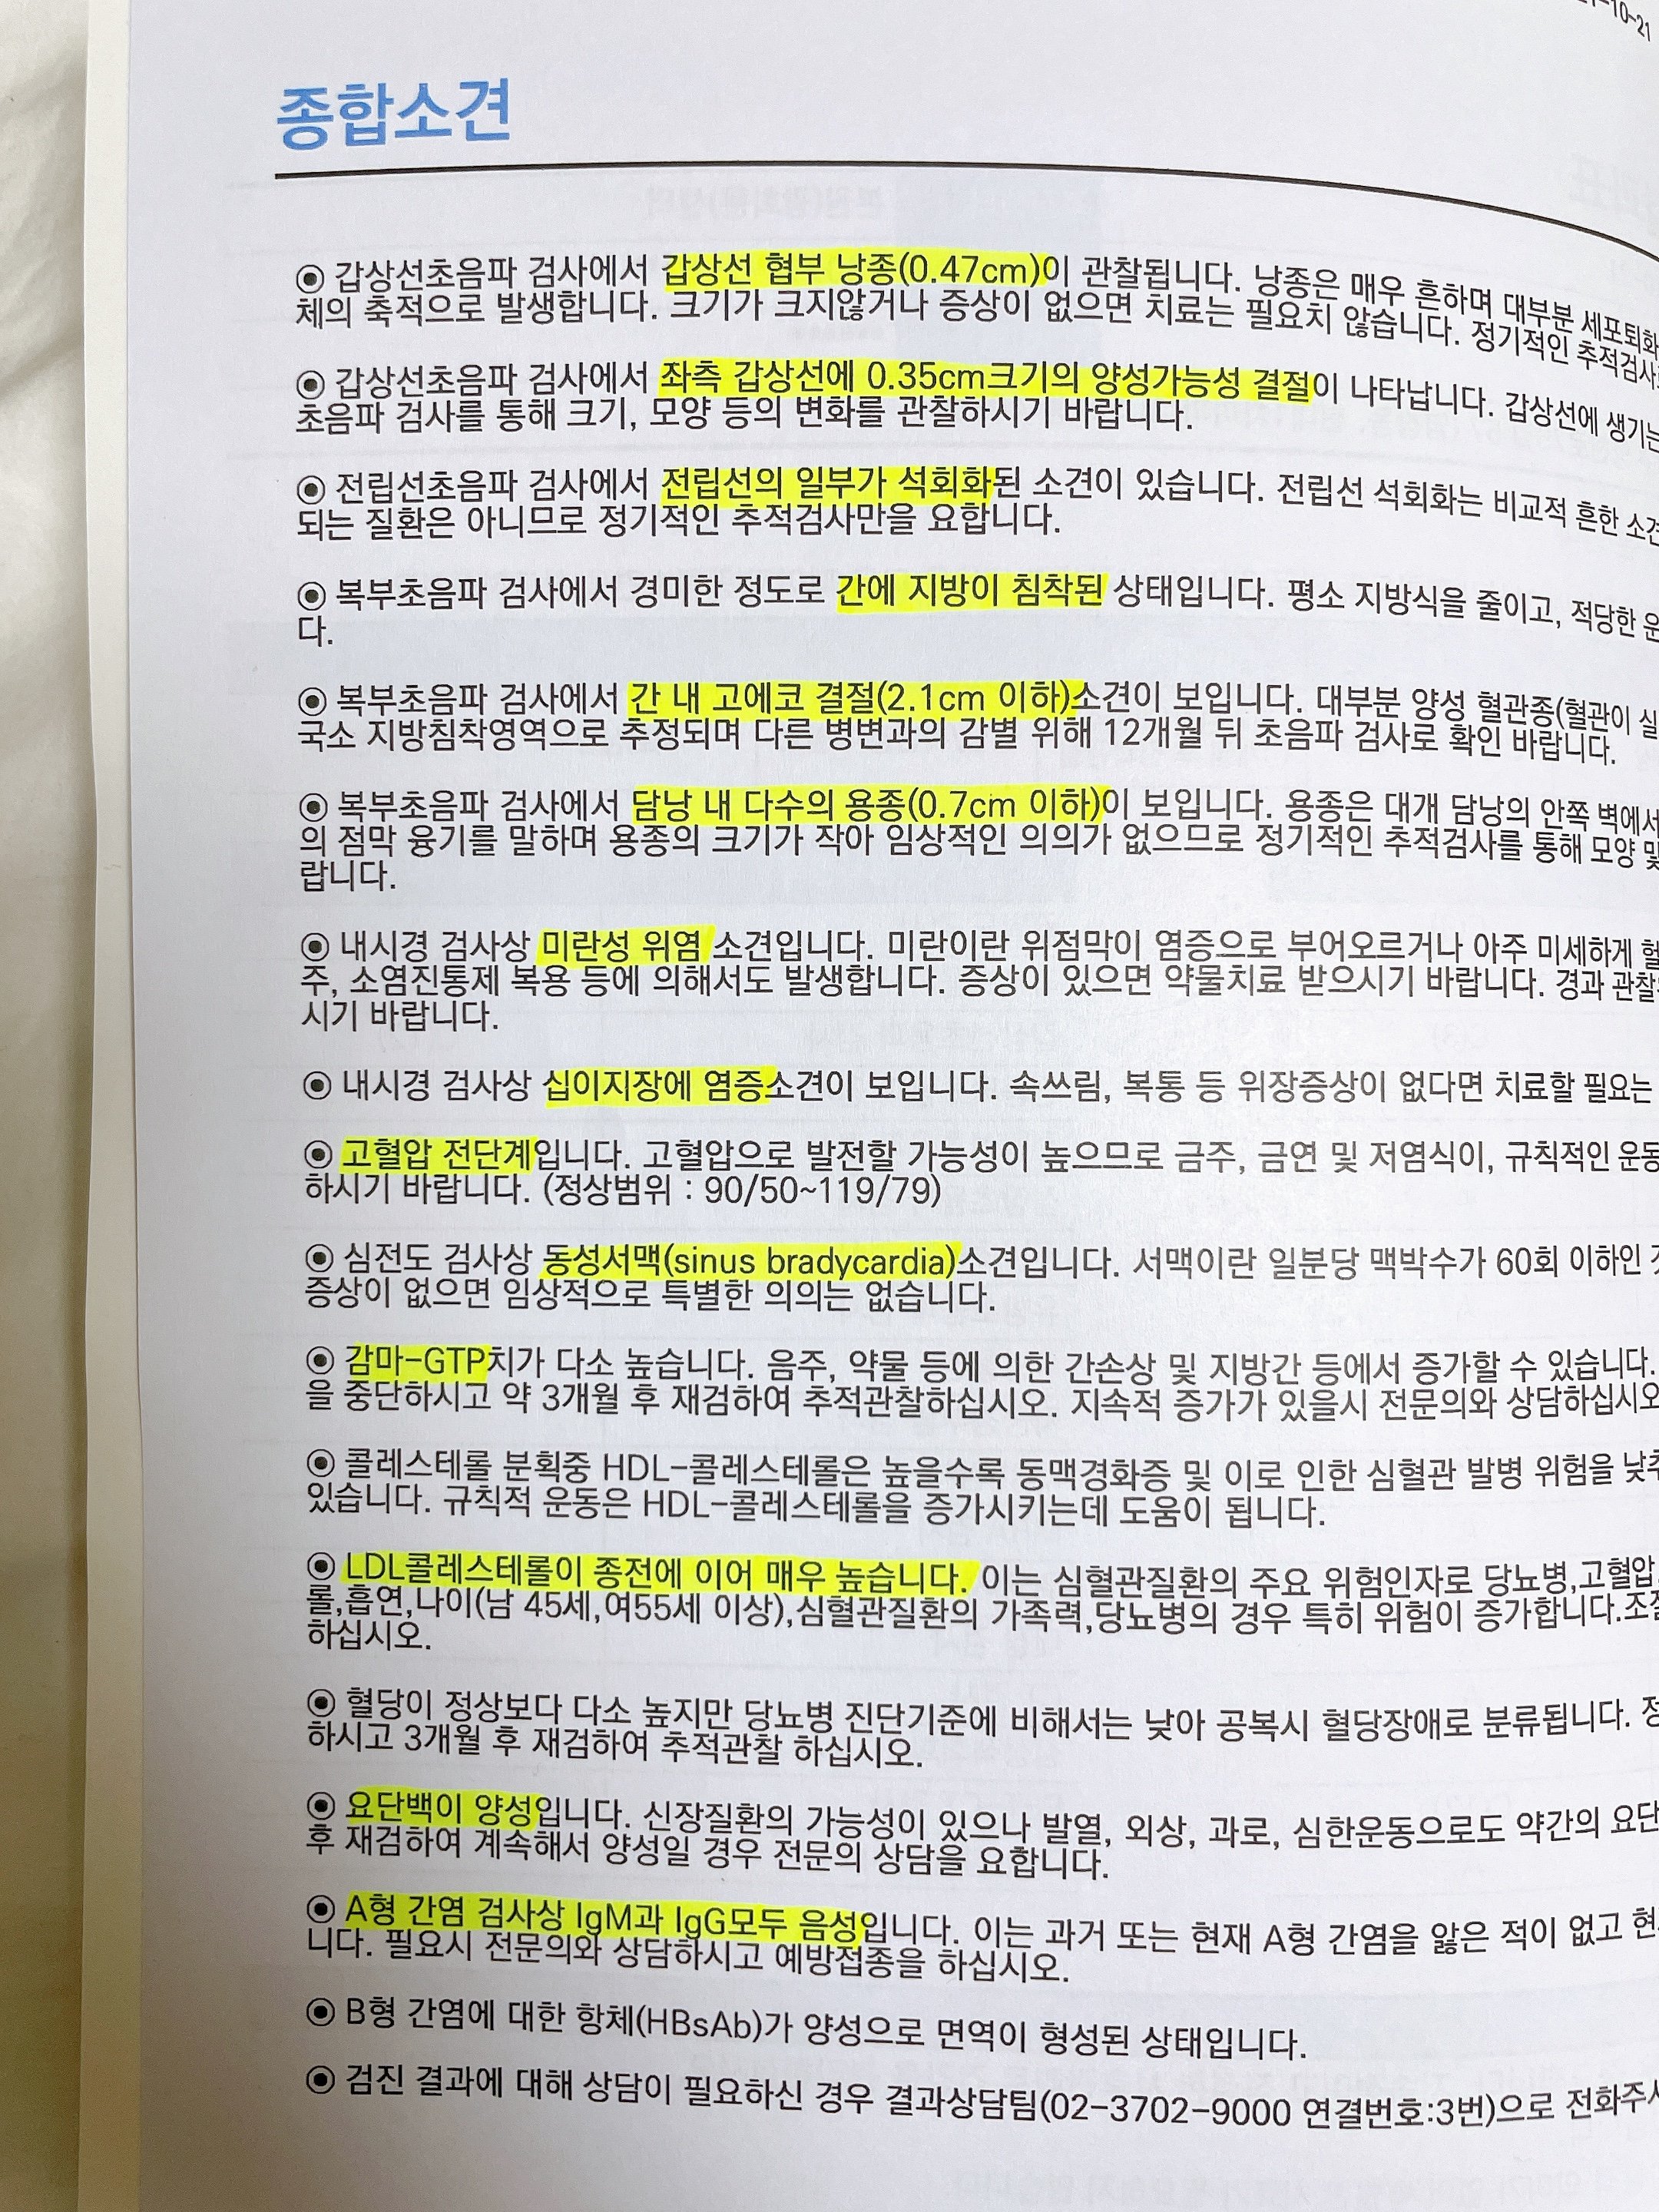 -10-21
종합소견
◉ 갑상선초음파 검사에서 갑상선 협부 낭종(0.47cm)이 관찰됩니다. 낭종은 매우 흔하며 대부분 세포퇴화
체의 축적으로 발생합니다. 크기가 크지않거나 증상이 없으면 치료는 필요치 않습니다. 정기적인 추적검사
◉ 갑상선초음파 검사에서 좌측 갑상선에 0.35cm크기의 양성가능성 결절이 나타납니다. 갑상선에 생기는
초음파 검사를 통해 크기, 모양 등의 변화를 관찰하시기 바랍니다.
◉ 전립선초음파 검사에서 전립선의 일부가 석회화된 소견이 있습니다. 전립선 석회화는 비교적 흔한 소견
되는 질환은 아니므로 정기적인 추적검사만을 요합니다.
◉ 복부초음파 검사에서 경미한 정도로 간에 지방이 침착된 상태입니다. 평소 지방식을 줄이고, 적당한
다.
◉ 복부초음파 검사에서 간 내 고에코 결절(2.1cm 이하)소견이 보입니다. 대부분 양성 혈관종(혈관이 실
국소 지방침착영역으로 추정되며 다른 병변과의 감별 위해 12개월 뒤 초음파 검사로 확인 바랍니다.
◉ 복부초음파 검사에서 담낭 내 다수의 용종(0.7cm 이하)이 보입니다. 용종은 대개 담낭의 안쪽 벽에서
의 점막 융기를 말하며 용종의 크기가 작아 임상적인 의의가 없으므로 정기적인 추적검사를 통해 모양 및
랍니다.
◉ 내시경 검사상 미란성 위염 소견입니다. 미란이란 위점막이 염증으로 부어오르거나 아주 미세하게
주, 소염진통제 복용 등에 의해서도 발생합니다. 증상이 있으면 약물치료 받으시기 바랍니다. 경과 관찰
시기 바랍니다.
◉ 내시경 검사상 십이지장에 염증소견이 보입니다. 속쓰림, 복통 등 위장증상이 없다면 치료할 필요는
◉ 고혈압 전단계입니다. 고혈압으로 발전할 가능성이 높으므로 금주, 금연 및 저염식이, 규칙적인 운동
하시기 바랍니다. (정상범위 : 90/50~119/79)
◉ 심전도 검사상 동성서맥(sinus bradycardia)소견입니다. 서맥이란 일분당 맥박수가 60회 이하인
증상이 없으면 임상적으로 특별한 의의는 없습니다.
◉ 감마-GTP치가 다소 높습니다. 음주, 약물 등에 의한 간손상 및 지방간 등에서 증가할 수 있습니다.
을 중단하시고 약 3개월 후 재검하여 추적관찰하십시오. 지속적 증가가 있을시 전문의와 상담하십시오
◉ 콜레스테롤 분획중 HDL-콜레스테롤은 높을수록 동맥경화증 및 이로 인한 심혈관 발병 위험을 낮추
있습니다. 규칙적 운동은 HDL-콜레스테롤을 증가시키는데 도움이 됩니다.
◉ LDL콜레스테롤이 종전에 이어 매우 높습니다. 이는 심혈관질환의 주요 위험인자로 당뇨병,고혈압
롤,흡연,나이(남 45세,여55세 이상),심혈관질환의 가족력,당뇨병의 경우 특히 위험이 증가합니다.조절
하십시오.
◉ 혈당이 정상보다 다소 높지만 당뇨병 진단기준에 비해서는 낮아 공복시 혈당장애로 분류됩니다. 정
하시고 3개월 후 재검하여 추적관찰 하십시오.
◉ 요단백이 양성입니다. 신장질환의 가능성이 있으나 발열, 외상, 과로, 심한운동으로도 약간의 요단
후 재검하여 계속해서 양성일 경우 전문의 상담을 요합니다.
◉ A형 간염 검사상 IgM과 IgG모두 음성입니다. 이는 과거 또는 현재 A형 간염을 앓은 적이 없고 현
니다. 필요시 전문의와 상담하시고 예방접종을 하십시오.
◉ B형 간염에 대한 항체(HBsAb)가 양성으로 면역이 형성된 상태입니다.
◉ 검진 결과에 대해 상담이 필요하신 경우 결과상담팀(02-3702-9000 연결번호:3번)으로 전화주시